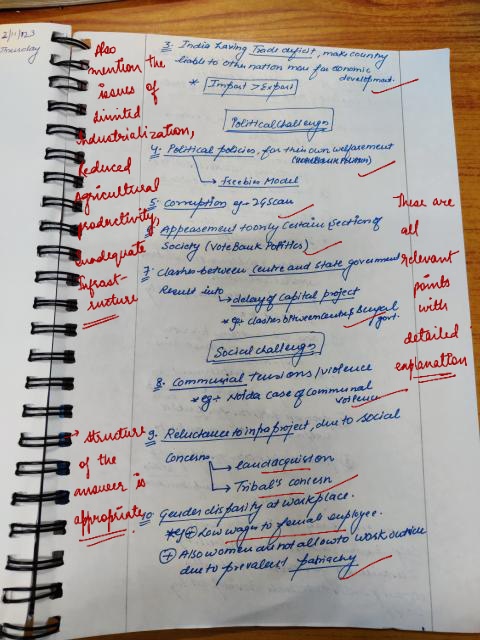 2/11/023
Thursday
Also
mention the
issues of
Limited
industrialization,
Reduced
Agricultural
productivity,
Inadequate
Infrast-
ructure
→ structure
of the
answer is
appropriate
3. India having Trade deficit, make country
liable to other nation more for economic
development.
* Import > Export
Political Challenges
4. Political policies, for their own welfarement
(vote Bank Politics)
→ Freebies Model
5. Corruption eg- 2G Scam
6. Appeasement to only certain section of
Society (Vote Bank Politics)
7. clashes between Centre and State government
Result into → delay of capital project
* eg+ clashes between center & Bengal
govt.
Social challenges
8. Communial tensions/violence
* eg+ Noida case of Communal
voilence
9. Reluctance to project, due to social
Concerns
→ land acquistion
→ Tribal's concern
10. Gender disparity at workplace.
* eg + Low wages to femial employee.
+ Also women are not allow to work outside
due to prevalent patriachy
These are
all
relevant
points
with
detailed
explanation